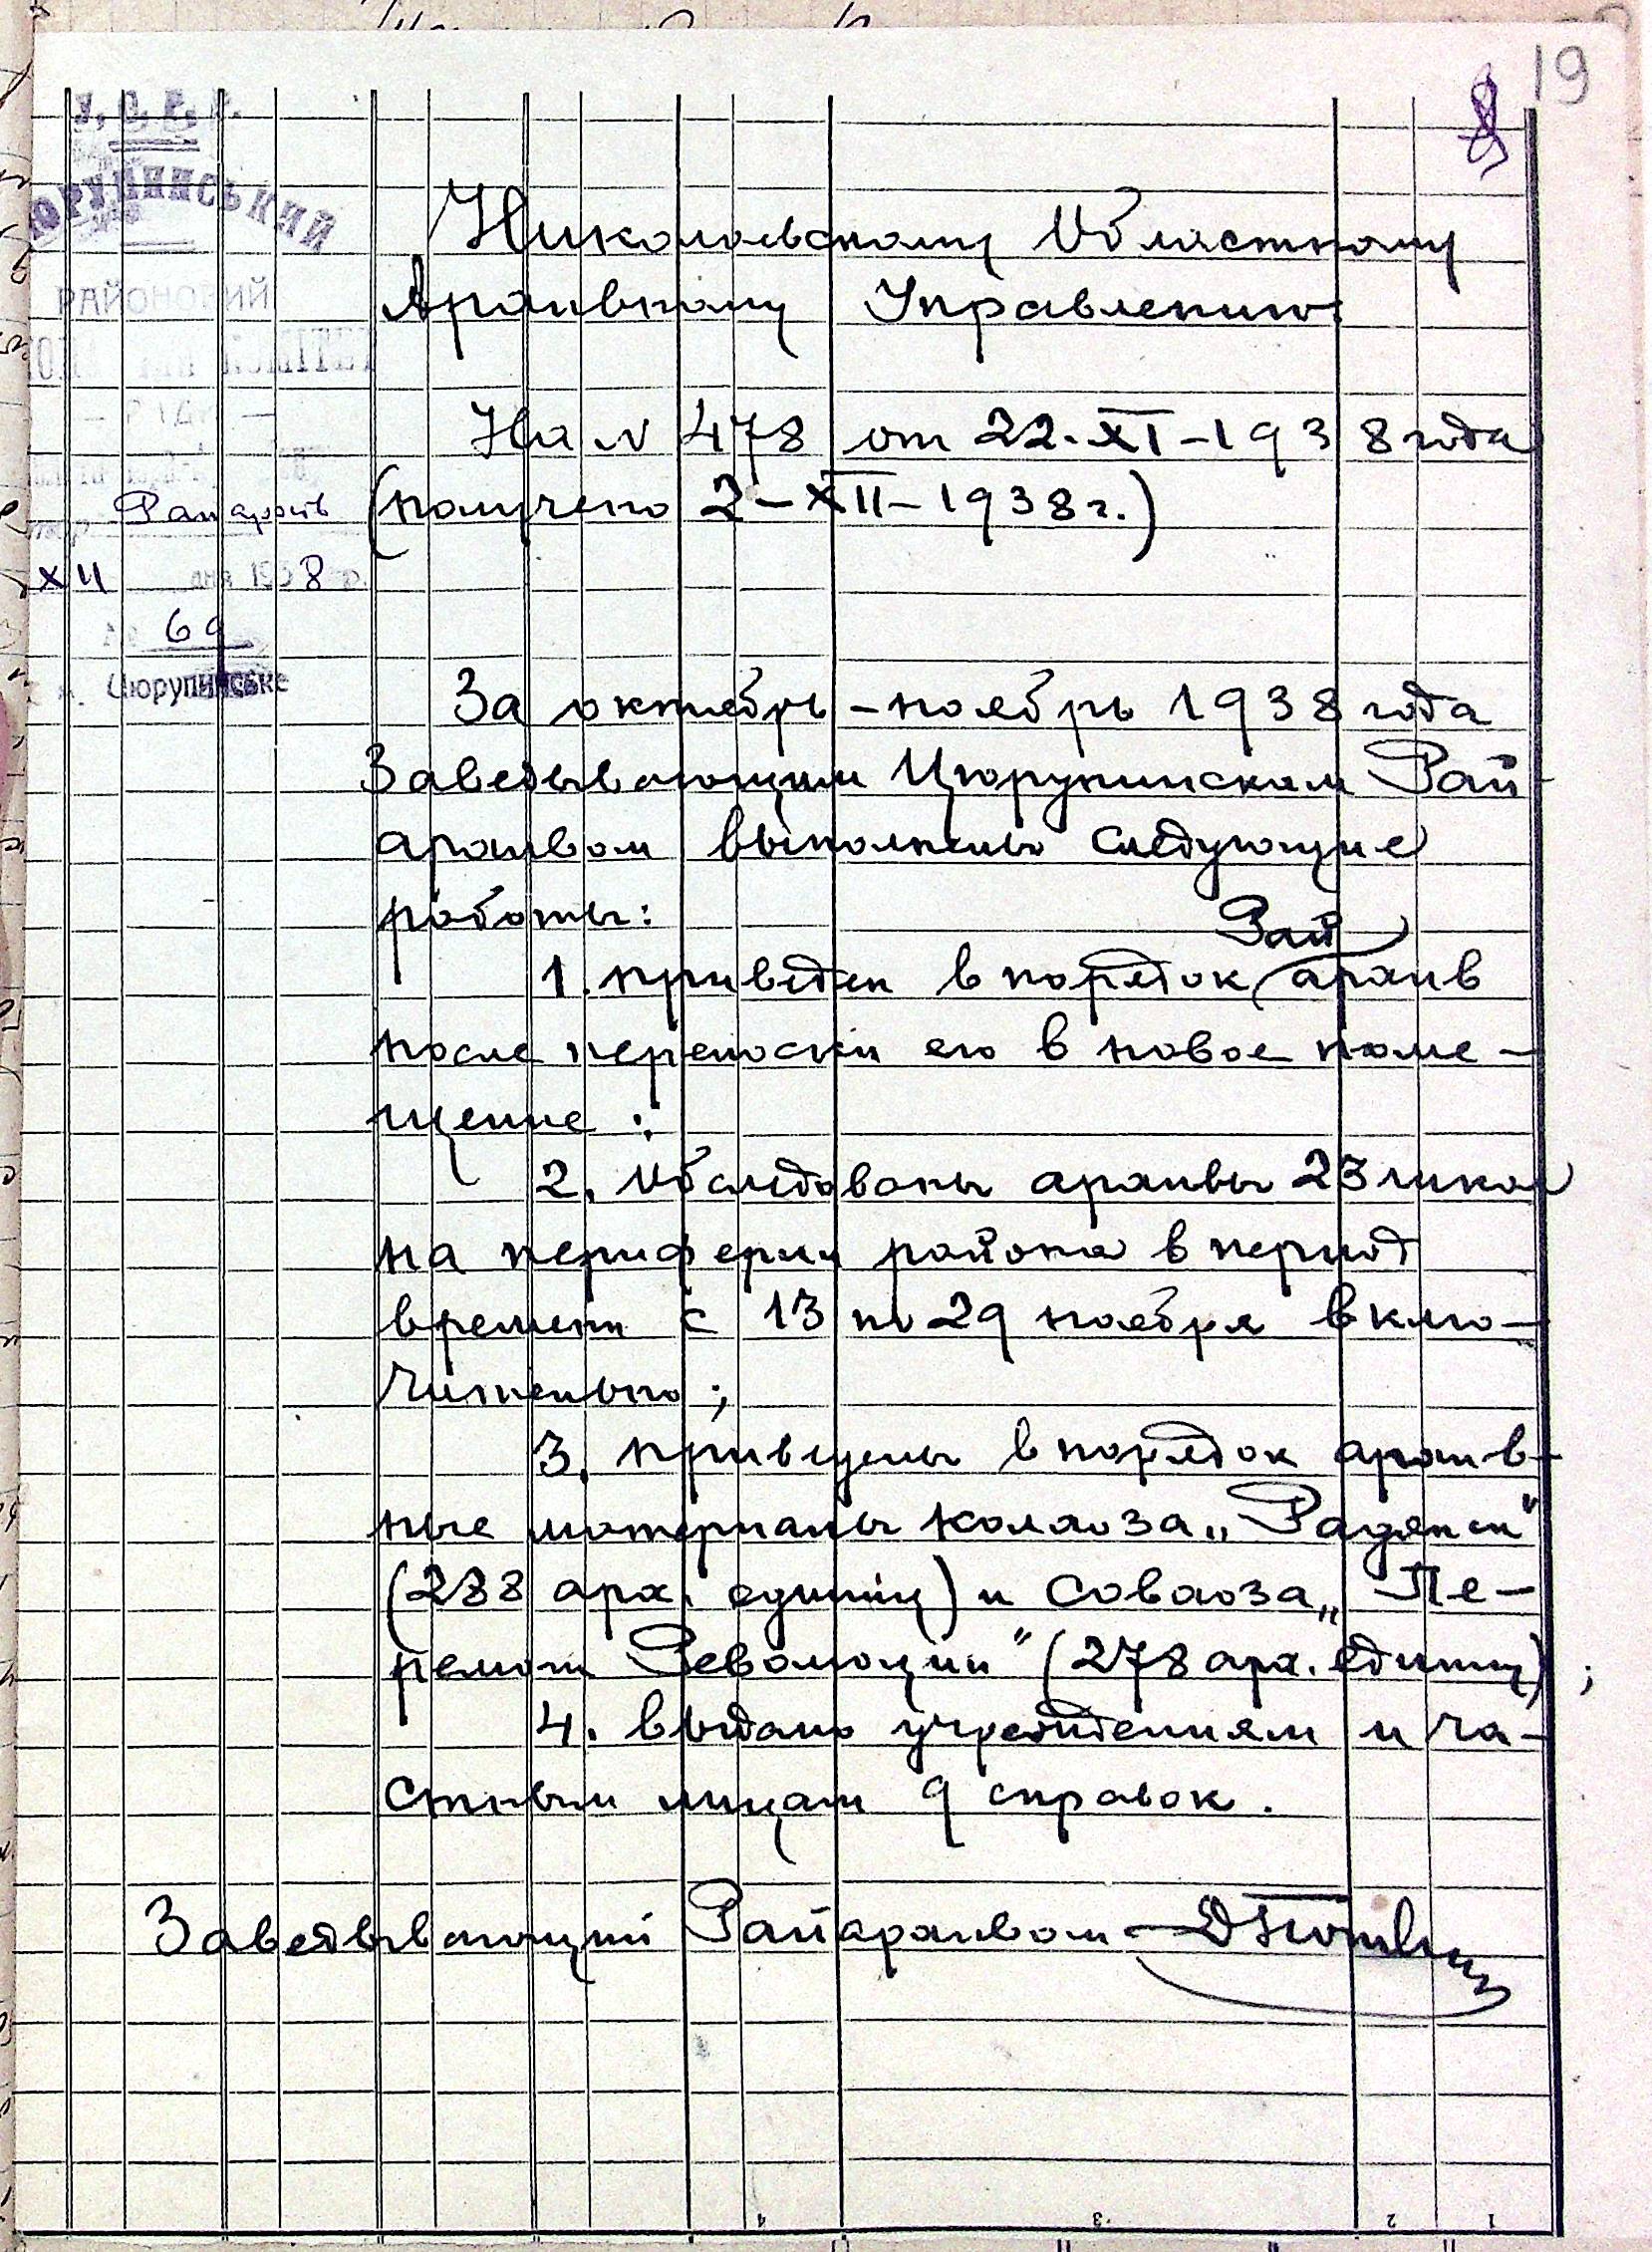 19
У. С. Р. Р.
ЮРУПИНСЬКИЙ
РАЙОНОВИЙ
Николаевскому Областному
Архивному Управлению
На N 478 от 22-XI-1938 года
(получено 2-XII-1938 г.)
Райархів
XII дня 1938 р.
69
Цюрупинське
За октябрь-ноябрь 1938 года
Заведывающим Цюрупинским Рай-
архивом выполнены следующие
работы:
1. приведен в порядок Райархив
после переноски его в новое поме-
щение;
2. Обследованы архивы 23 школ
на периферии района в период
времени с 13 по 29 ноября вклю-
чительно;
3. приведены в порядок архив-
ные материалы колхоза „Радянськ"
(288 арх. единиц) и Совхоза „Пе-
ремоги Революции" (278 арх. единиц);
4. выдано учреждениям и ча-
стным лицам 9 справок.
Заведывающий Райархивом